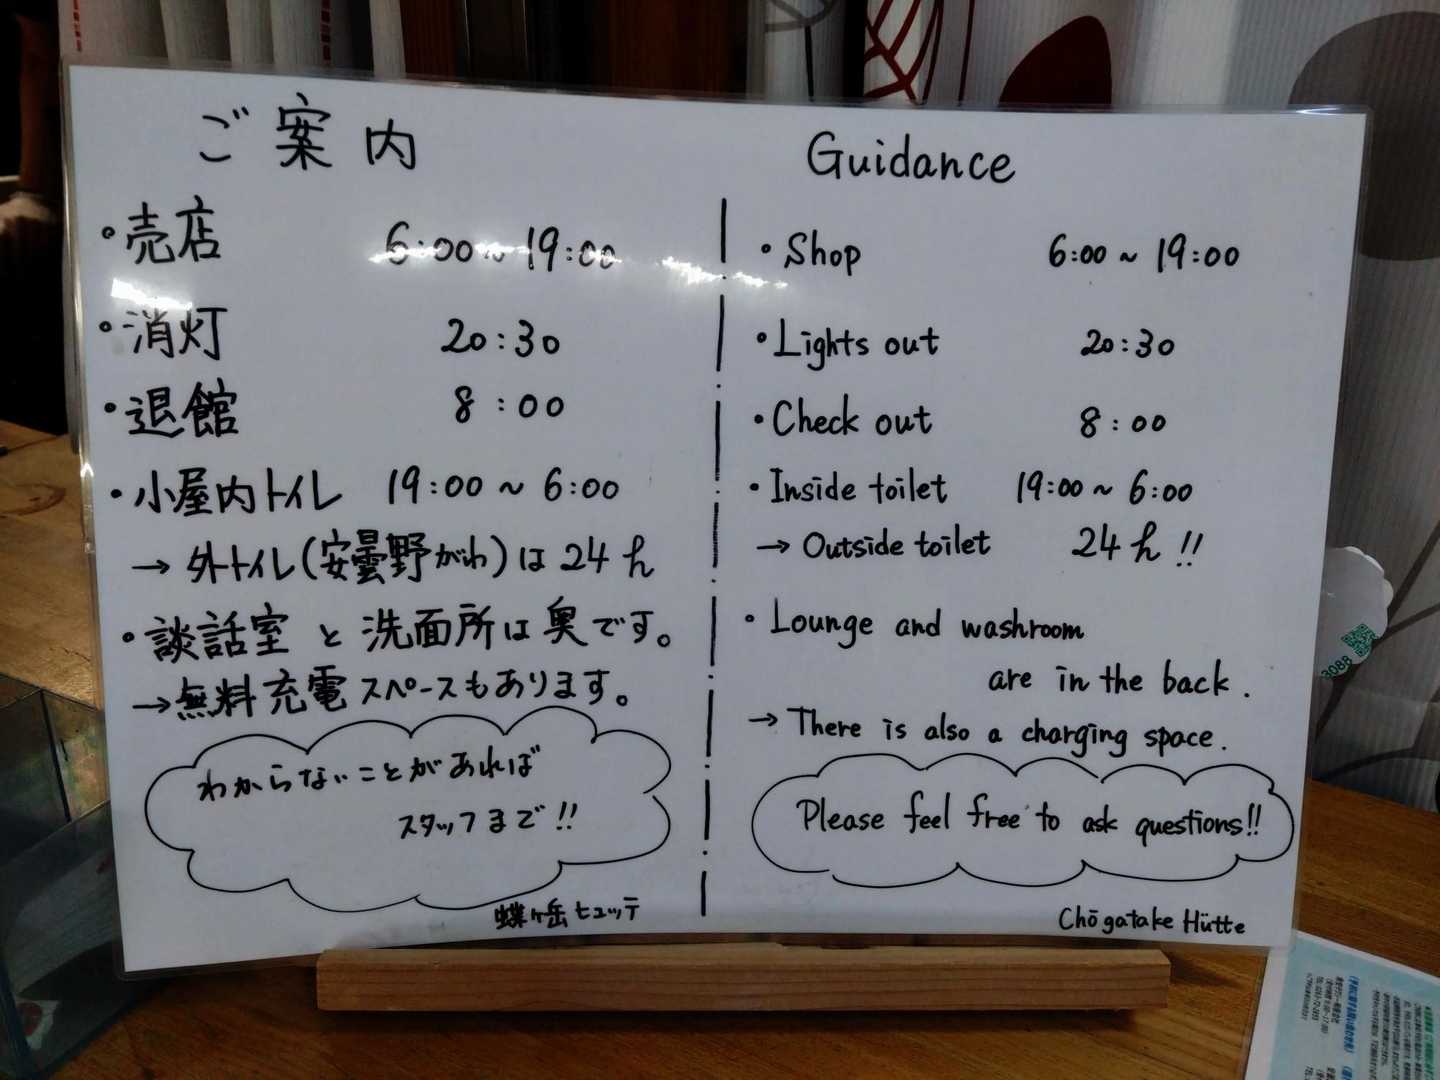 ご案内
・売店 6:00~19:00
・消灯 20:30
・退館 8:00
・小屋内トイレ 19:00~6:00
→ 外トイレ(安曇野がわ)は24h
・談話室と洗面所は奥です。
→無料充電スペースもあります。
わからないことがあれば
スタッフまで!!
蝶ヶ岳ヒュッテ
Guidance
・Shop 6:00~19:00
・Lights out 20:30
・Check out 8:00
・Inside toilet 19:00~6:00
→ Outside toilet 24h!!
・Lounge and washroom
are in the back.
→ There is also a charging space.
Please feel free to ask questions!!
Chōgatake Hütte
3088